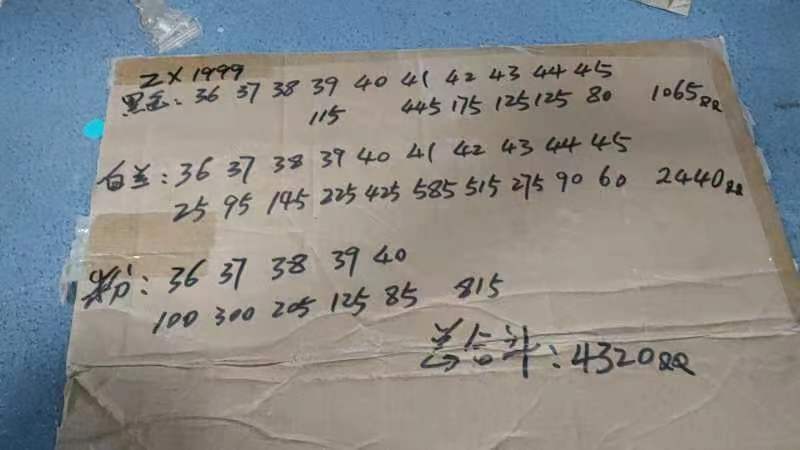 ZX1999
黑金: 36 37 38 39 40 41 42 43 44 45
115 445 175 125 125 80 1065双
白兰: 36 37 38 39 40 41 42 43 44 45
25 95 145 225 425 585 515 275 90 60 2440双
粉: 36 37 38 39 40
100 300 205 125 85 815
总合计: 4320双